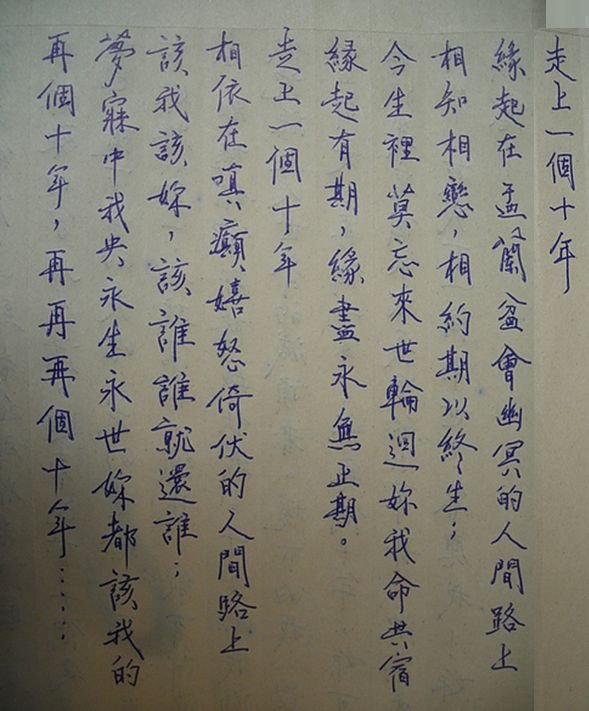 走上一個十年
緣起在盂蘭盆會幽冥的人間路上
相知相戀，相約期以終生；
今生裡莫忘來世輪迴妳我命共宿
緣起有期，緣盡永無止期。
走上一個十年
相依在嗔癲嬉怒倚伏的人間路上
該我該妳，該誰誰就還誰；
夢寐中我央永生永世妳都該我的
再個十年，再再再個十年……；